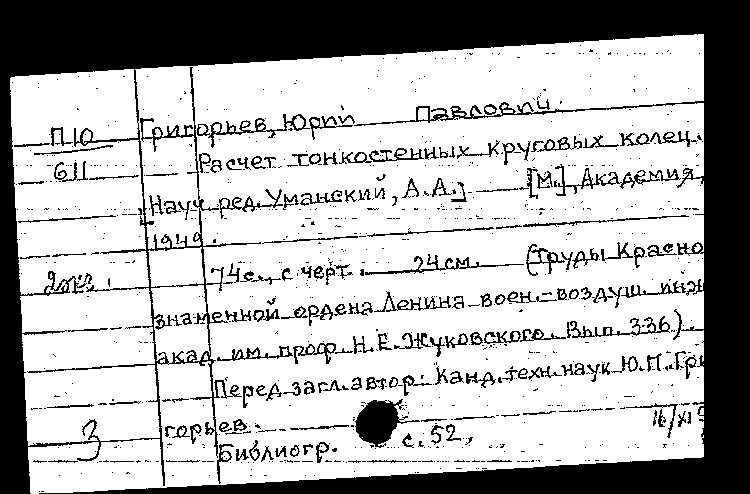 П10 Григорьев, Юрий Павлович.
611 Расчет тонкостенных круговых колец.
[Науч. ред. Уманский, А.А.] [М.], Академия,
1949.
2 экз. 74 с., с черт. 24 см. (Труды Красно
знаменной ордена Ленина воен.-воздуш. инж
акад. им. проф. Н.Е. Жуковского. Вып. 336).
Перед загл. автор: Канд. техн. наук Ю.П. Гри
горьев.
3 Библиогр. с. 52. 16/XI